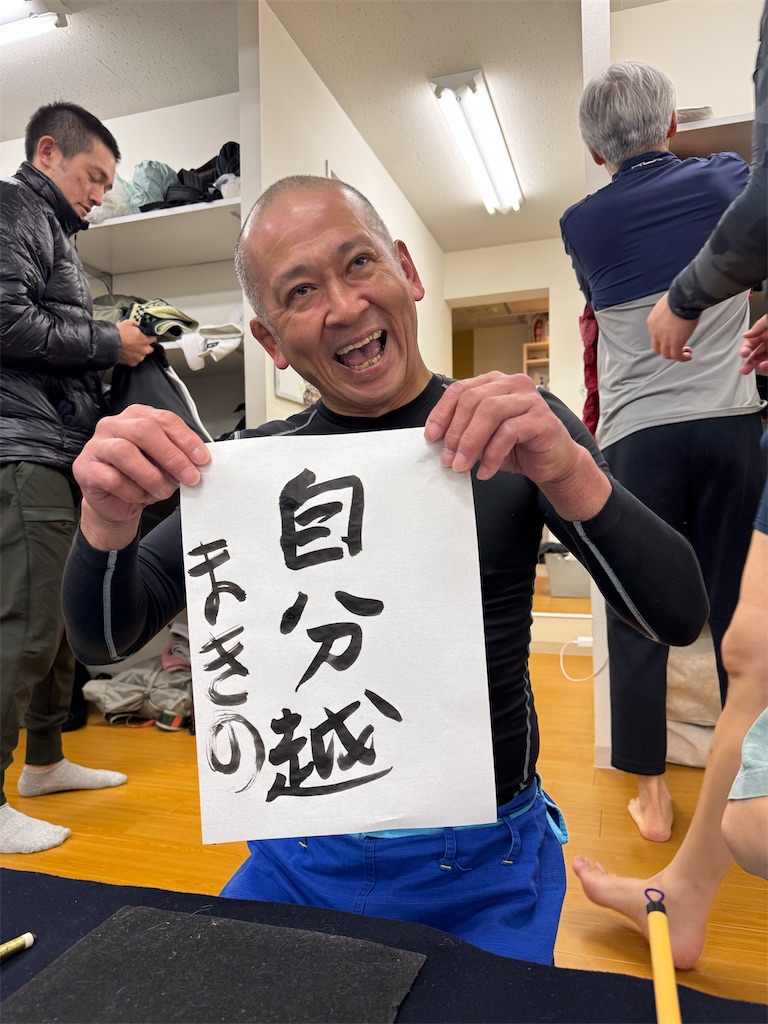 自分越
まきの